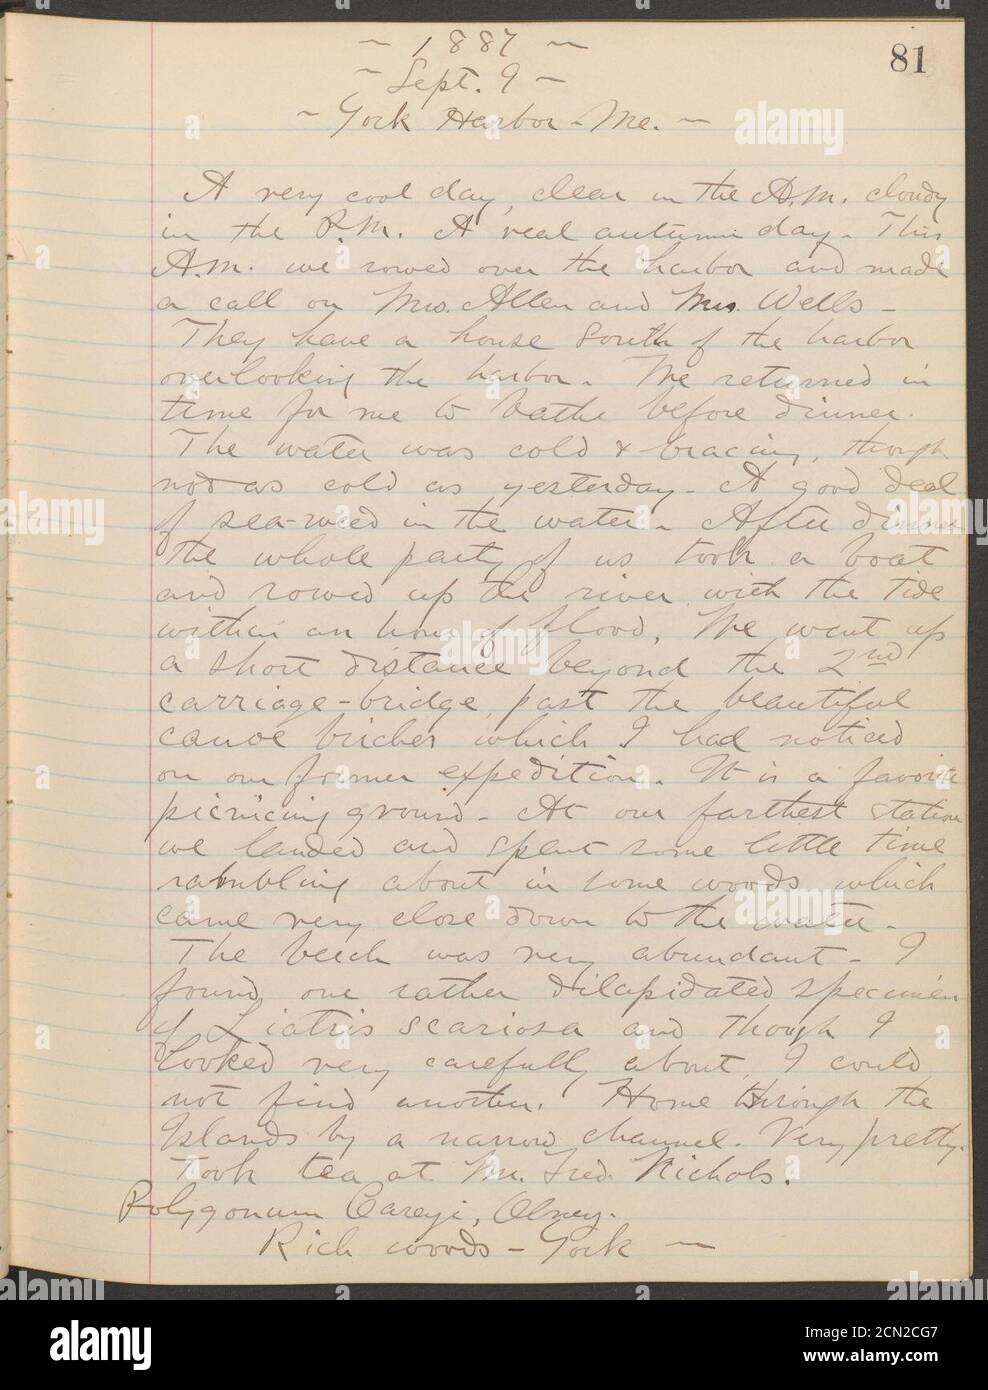 81
~ 1887 ~
~ Sept. 9 ~
~ York Harbor - Me. ~
A very cool day, clear in the A.M. cloudy
in the P.M. A real autumn day. This
A.M. we rowed over the harbor and made
a call on Mrs. Allen and Mrs. Wells -
They have a house South of the harbor
overlooking the harbor. We returned in
time for me to bathe before dinner.
The water was cold & bracing, though
not as cold as yesterday - A good deal
of sea-weed in the water. After dinner
the whole party of us took a boat
and rowed up the river with the tide
within an hour of flood. We went up
a short distance beyond the 2nd
carriage-bridge, past the beautiful
canoe birches which I had noticed
on our former expedition. It is a favorite
picnicing ground - At our farthest station
we landed and spent some little time
rambling about in some woods which
came very close down to the water.
The beech was very abundant - I
found one rather dilapidated specimen
of Liatris scariosa and though I
looked very carefully about, I could
not find another. Home through the
Islands by a narrow channel. Very pretty.
Took tea at Mr. Fred. Nichols.
Polygonum Careyi, Olney.
Rich woods - York ~
alamy
Image ID: 2CN2CG7
www.alamy.com